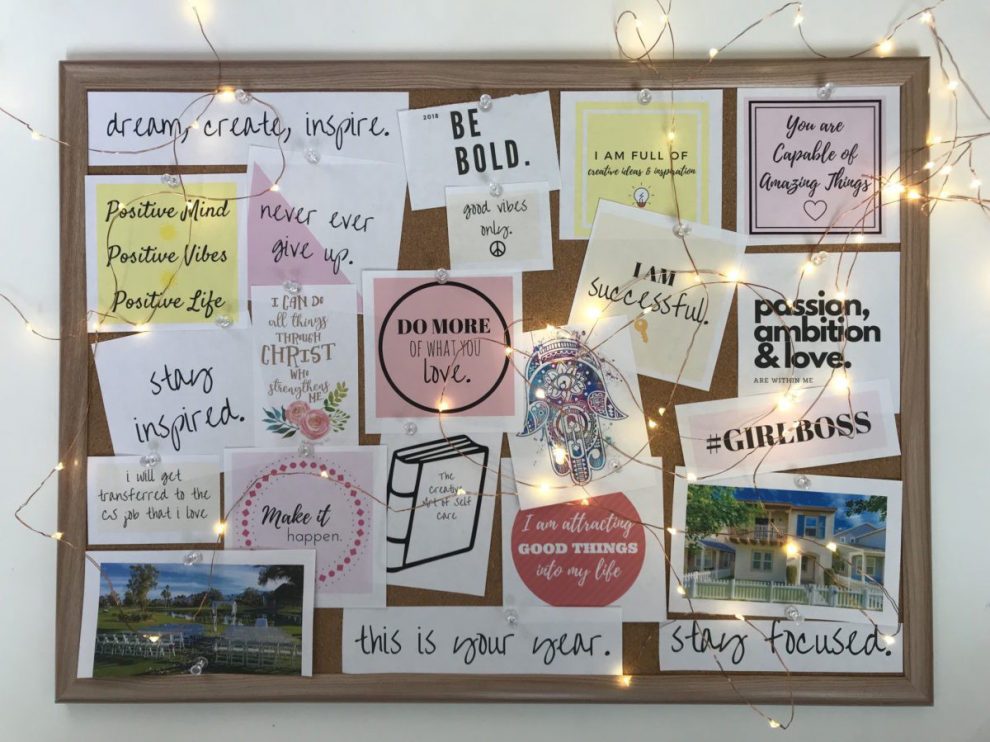 dream, create, inspire.
2018
BE
BOLD.
I AM FULL OF
creative ideas & inspiration
You are
Capable of
Amazing Things
Positive Mind
Positive Vibes
Positive Life
never ever
give up.
good vibes
only.
I AM
successful.
passion,
ambition
& love.
ARE WITHIN ME
I CAN DO
all things
THROUGH
CHRIST
WHO
strengthens
ME
DO MORE
OF WHAT YOU
Love.
stay
inspired.
#GIRLBOSS
i will get
transferred to the
CS job that i love
Make it
happen.
The
creative
art of self
care
I am attracting
GOOD THINGS
into my life
this is your year.
stay focused.